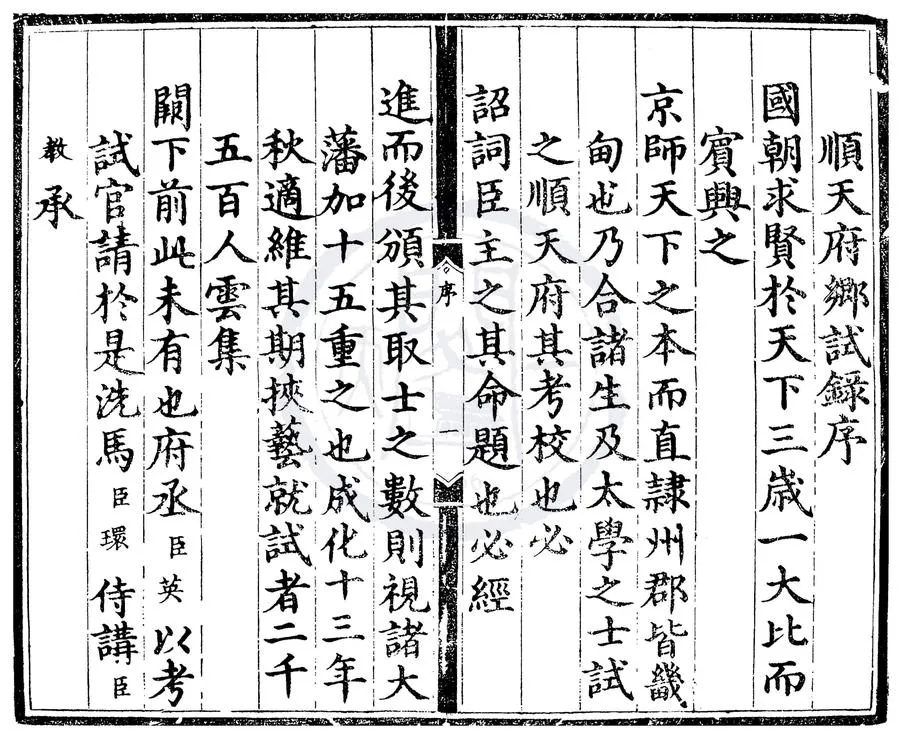 順天府鄉試錄序
國朝求賢於天下三歲一大比而
賓興之
京師天下之本而直隸州郡皆畿
甸也乃合諸生及太學之士試
之順天府其考校也必
詔詞臣主之其命題也必經
序
一
進而後頒其取士之數則視諸大
藩加十五重之也成化十三年
秋適維其期挾藝就試者二千
五百人雲集
闕下前此未有也府丞臣英以考
試官請於是洗馬臣環侍講臣
敎承